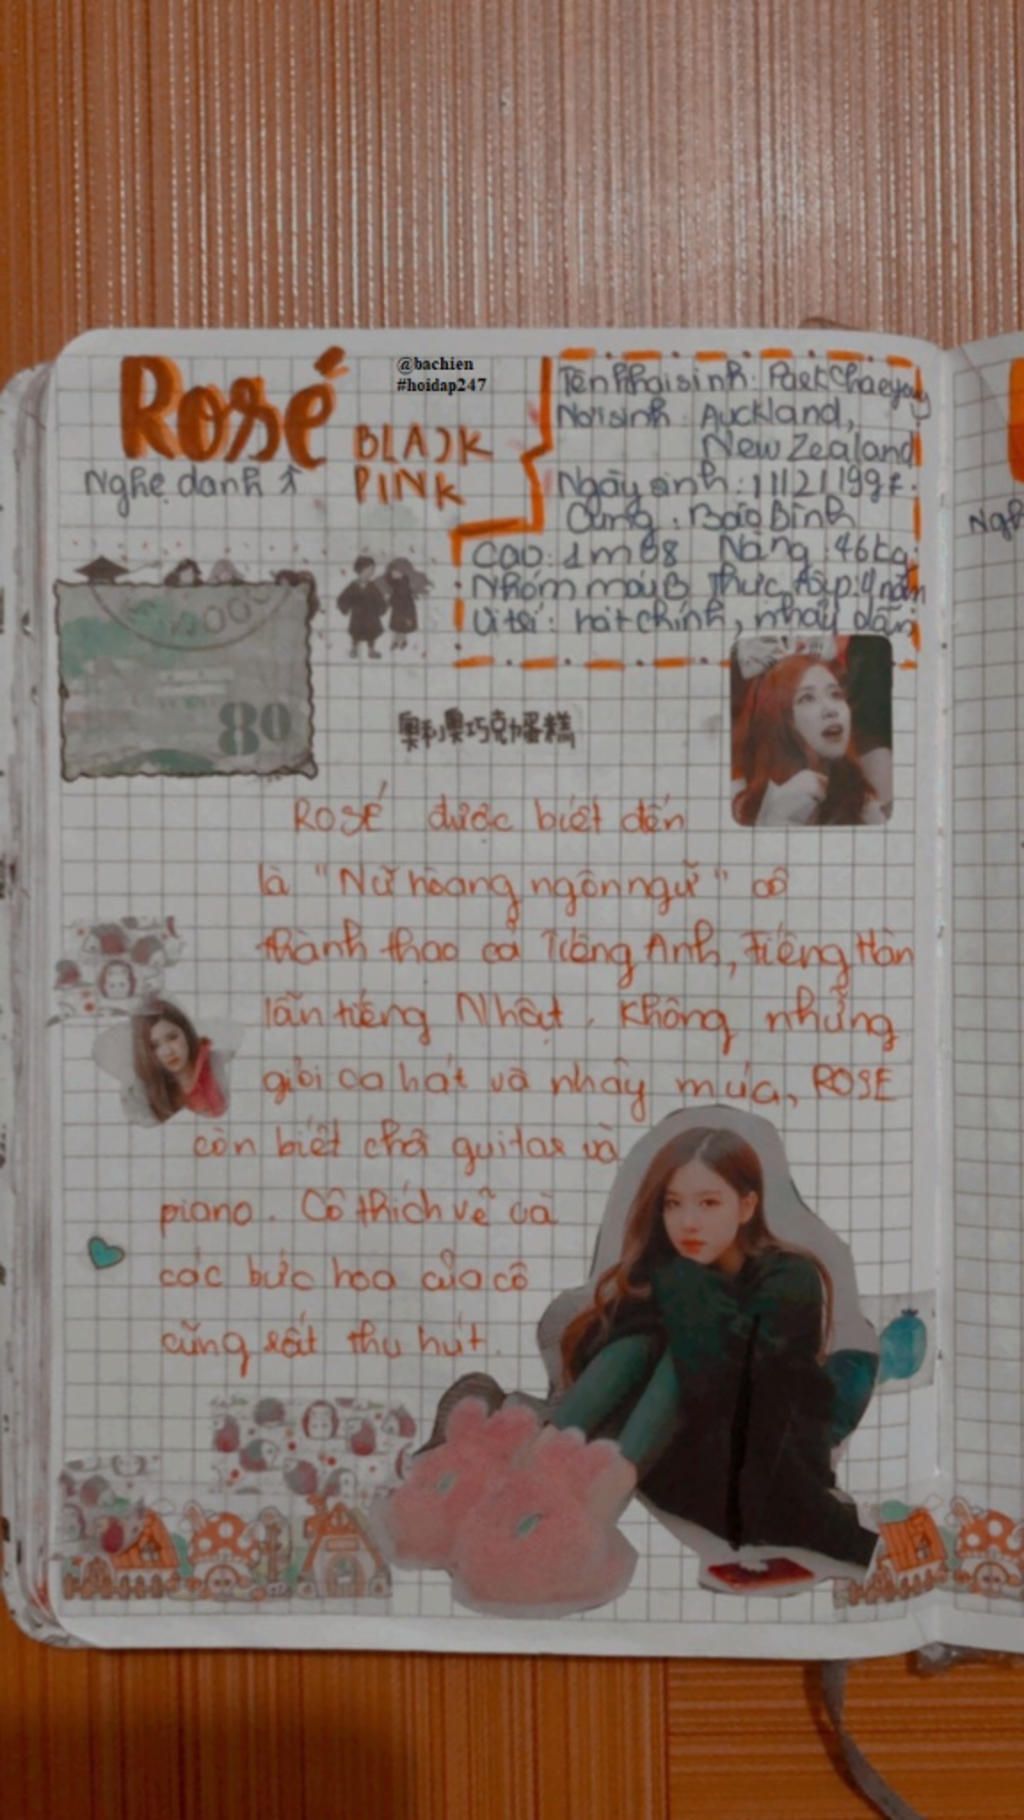 Rosé
@bachien
#hoidap247
BLACK
PINK
Nghẹ danh ↑
Tên khai sinh: Park Chaeyoung
Nơi sinh: Auckland,
New Zealand
Ngày sinh: 11/2/1997.
Cung: Bảo Bình
Cao: 1m68 Nặng: 46kg
Nhóm máu B Thực tập: 4 năm
Vị trí: hát chính, nhảy dẫn
80
奥利奥巧克力蛋糕
ROSÉ được biết đến
là "Nữ hoàng ngôn ngữ" cô
thành thạo cả Tiếng Anh, Tiếng Hàn
lẫn tiếng Nhật. Không những
giỏi ca hát và nhảy múa, ROSE
còn biết chơi guitar và
piano. Cô thích vẽ và
các bức hoạ của cô
cũng rất thu hút.
Ngh